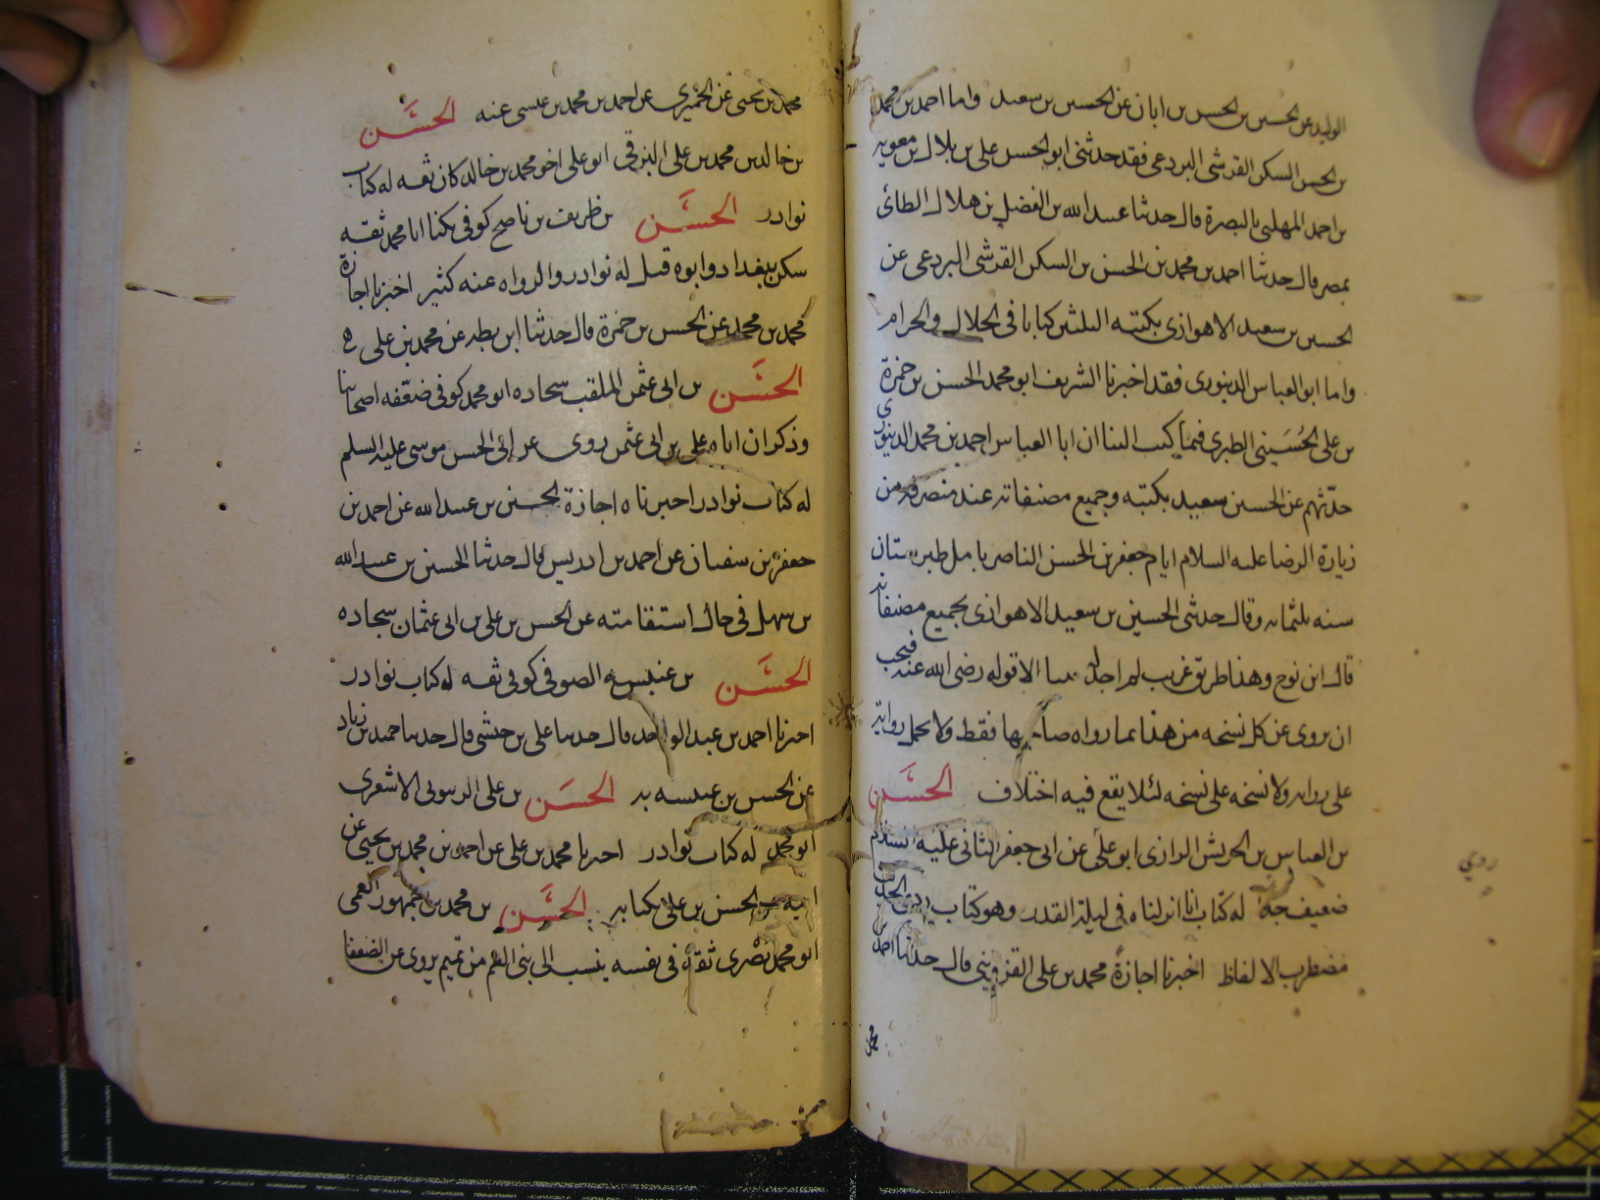 الوليد عن الحسين بن الحسن بن ابان عن الحسين بن سعيد واما احمد بن محمد
بن الحسن السكن القرشى البردعى فقد حدثنى ابو الحسن على بن بلال بن معويه
بن احمد المهلبى بالبصرة قال حدثنا عبد الله بن الفضل بن هلال الطائى
بمصر قال حدثنا احمد بن محمد بن الحسن بن السكن القرشى البردعى عن
الحسين بن سعيد الاهوازى بكتبه الثلثين كتابا فى الحلال والحرام
واما ابو العباس الدينورى فقد اخبرنا الشريف ابو محمد الحسن بن حمزة
بن على الحُسَينى الطبرى فيما كتب الينا ان ابا العباس احمد بن محمد الدينورى
حدّثهم عن الحسين سعيد بكتبه وجميع مصنفاته عند منصرفه من
زيارة الرضا عليه السلام ايام جعفر بن الحسن الناصر بامل طبرستان
سنه ثلثمائه وقال حدثنى الحسين بن سعيد الاهوازى بجميع مصنفاته
قال ابن نوح وهذا طريق غريب لم اجد له ثبتا الا قوله رضى الله عنه فيجب
ان يروى عن كل نسخه من هذا بما رواه صاحبها فقط ولا يحمل رواية
على روايه ولا نسخه على نسخه لئلا يقع فيه اختلاف الحسَن
بن العباس بن الحريش الرازى ابو على عن ابى جعفر الثانى عليه السلام
ضعيف جدا له كتاب انا انزلناه فى ليلة القدر وهو كتاب ردى الحديث
ردي
مضطرب الالفاظ اخبرنا اجازة محمد بن على القزوينى قال حدثنا احمد بن
محمد
محمد بن يحيى عن الحميرى عن احمد بن محمد بن عيسى عنه الحسَن
بن خالد بن محمد بن على البرقى ابو على اخو محمد بن خالد كان ثقه له كتاب
نوادر الحسَن بن ظريف بن ناصح كوفى يكنا ابا محمد ثقه
سكن ببغداد وابوه قبل له نوادر والرواه عنه كثير اخبرنا اجازة
محمد بن محمد عن الحسن بن حمزة قال حدثنا ابن بطه عن محمد بن على
الحسَن بن ابى عثمن الملقب سجاده ابو محمد كوفى ضعّفه اصحابنا
وذكر ان اباه على بن ابى عثمن روى عن ابى الحسن موسى عليه السلم
له كتاب نوادر اخبرناه اجازة الحسين بن عبيد الله عن احمد بن
جعفر بن سفيان عن احمد بن ادريس قال حدثنا الحسين بن عبيد الله
بن سهل فى حال استقامته عن الحسن بن على بن ابى عثمان سجاده
الحسَن بن عنبسه الصوفى كوفى ثقه له كتاب نوادر
اخبرنا احمد بن عبد الواحد قال حدثنا على بن حبشى قال حدثنا حميد بن زياد
عن الحسن بن عنبسه به الحسَن بن على الزيتونى الاشعرى
ابو محمد له كتاب نوادر اخبرنا محمد بن على عن احمد بن محمد بن يحيى عن
ابيه عن الحسن بن على بكتابه الحسَن بن محمد بن جمهور العمى
ابو محمد بصْرى ثقة فى نفسه ينسب الى بنى العم من تميم يروى عن الضعفا